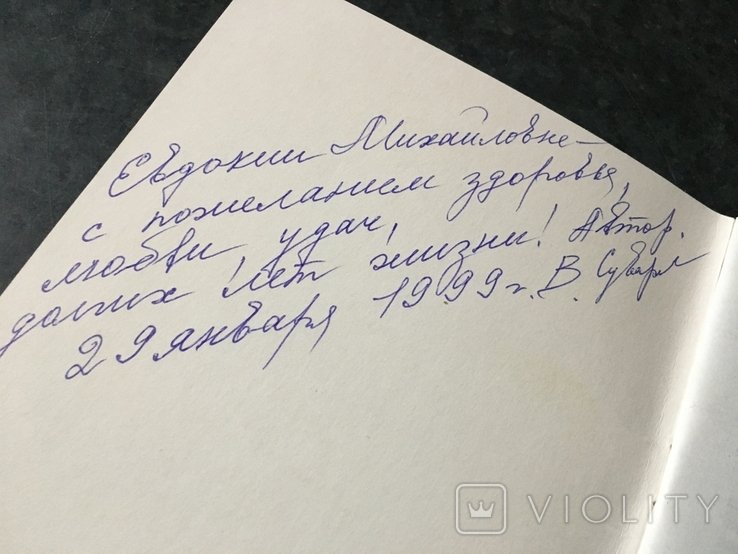 Евдокии Михайловне -
с пожеланием здоровья,
любви, удач,
долгих лет жизни! Автор.
29 января 1999 г. В.
VIOLITY